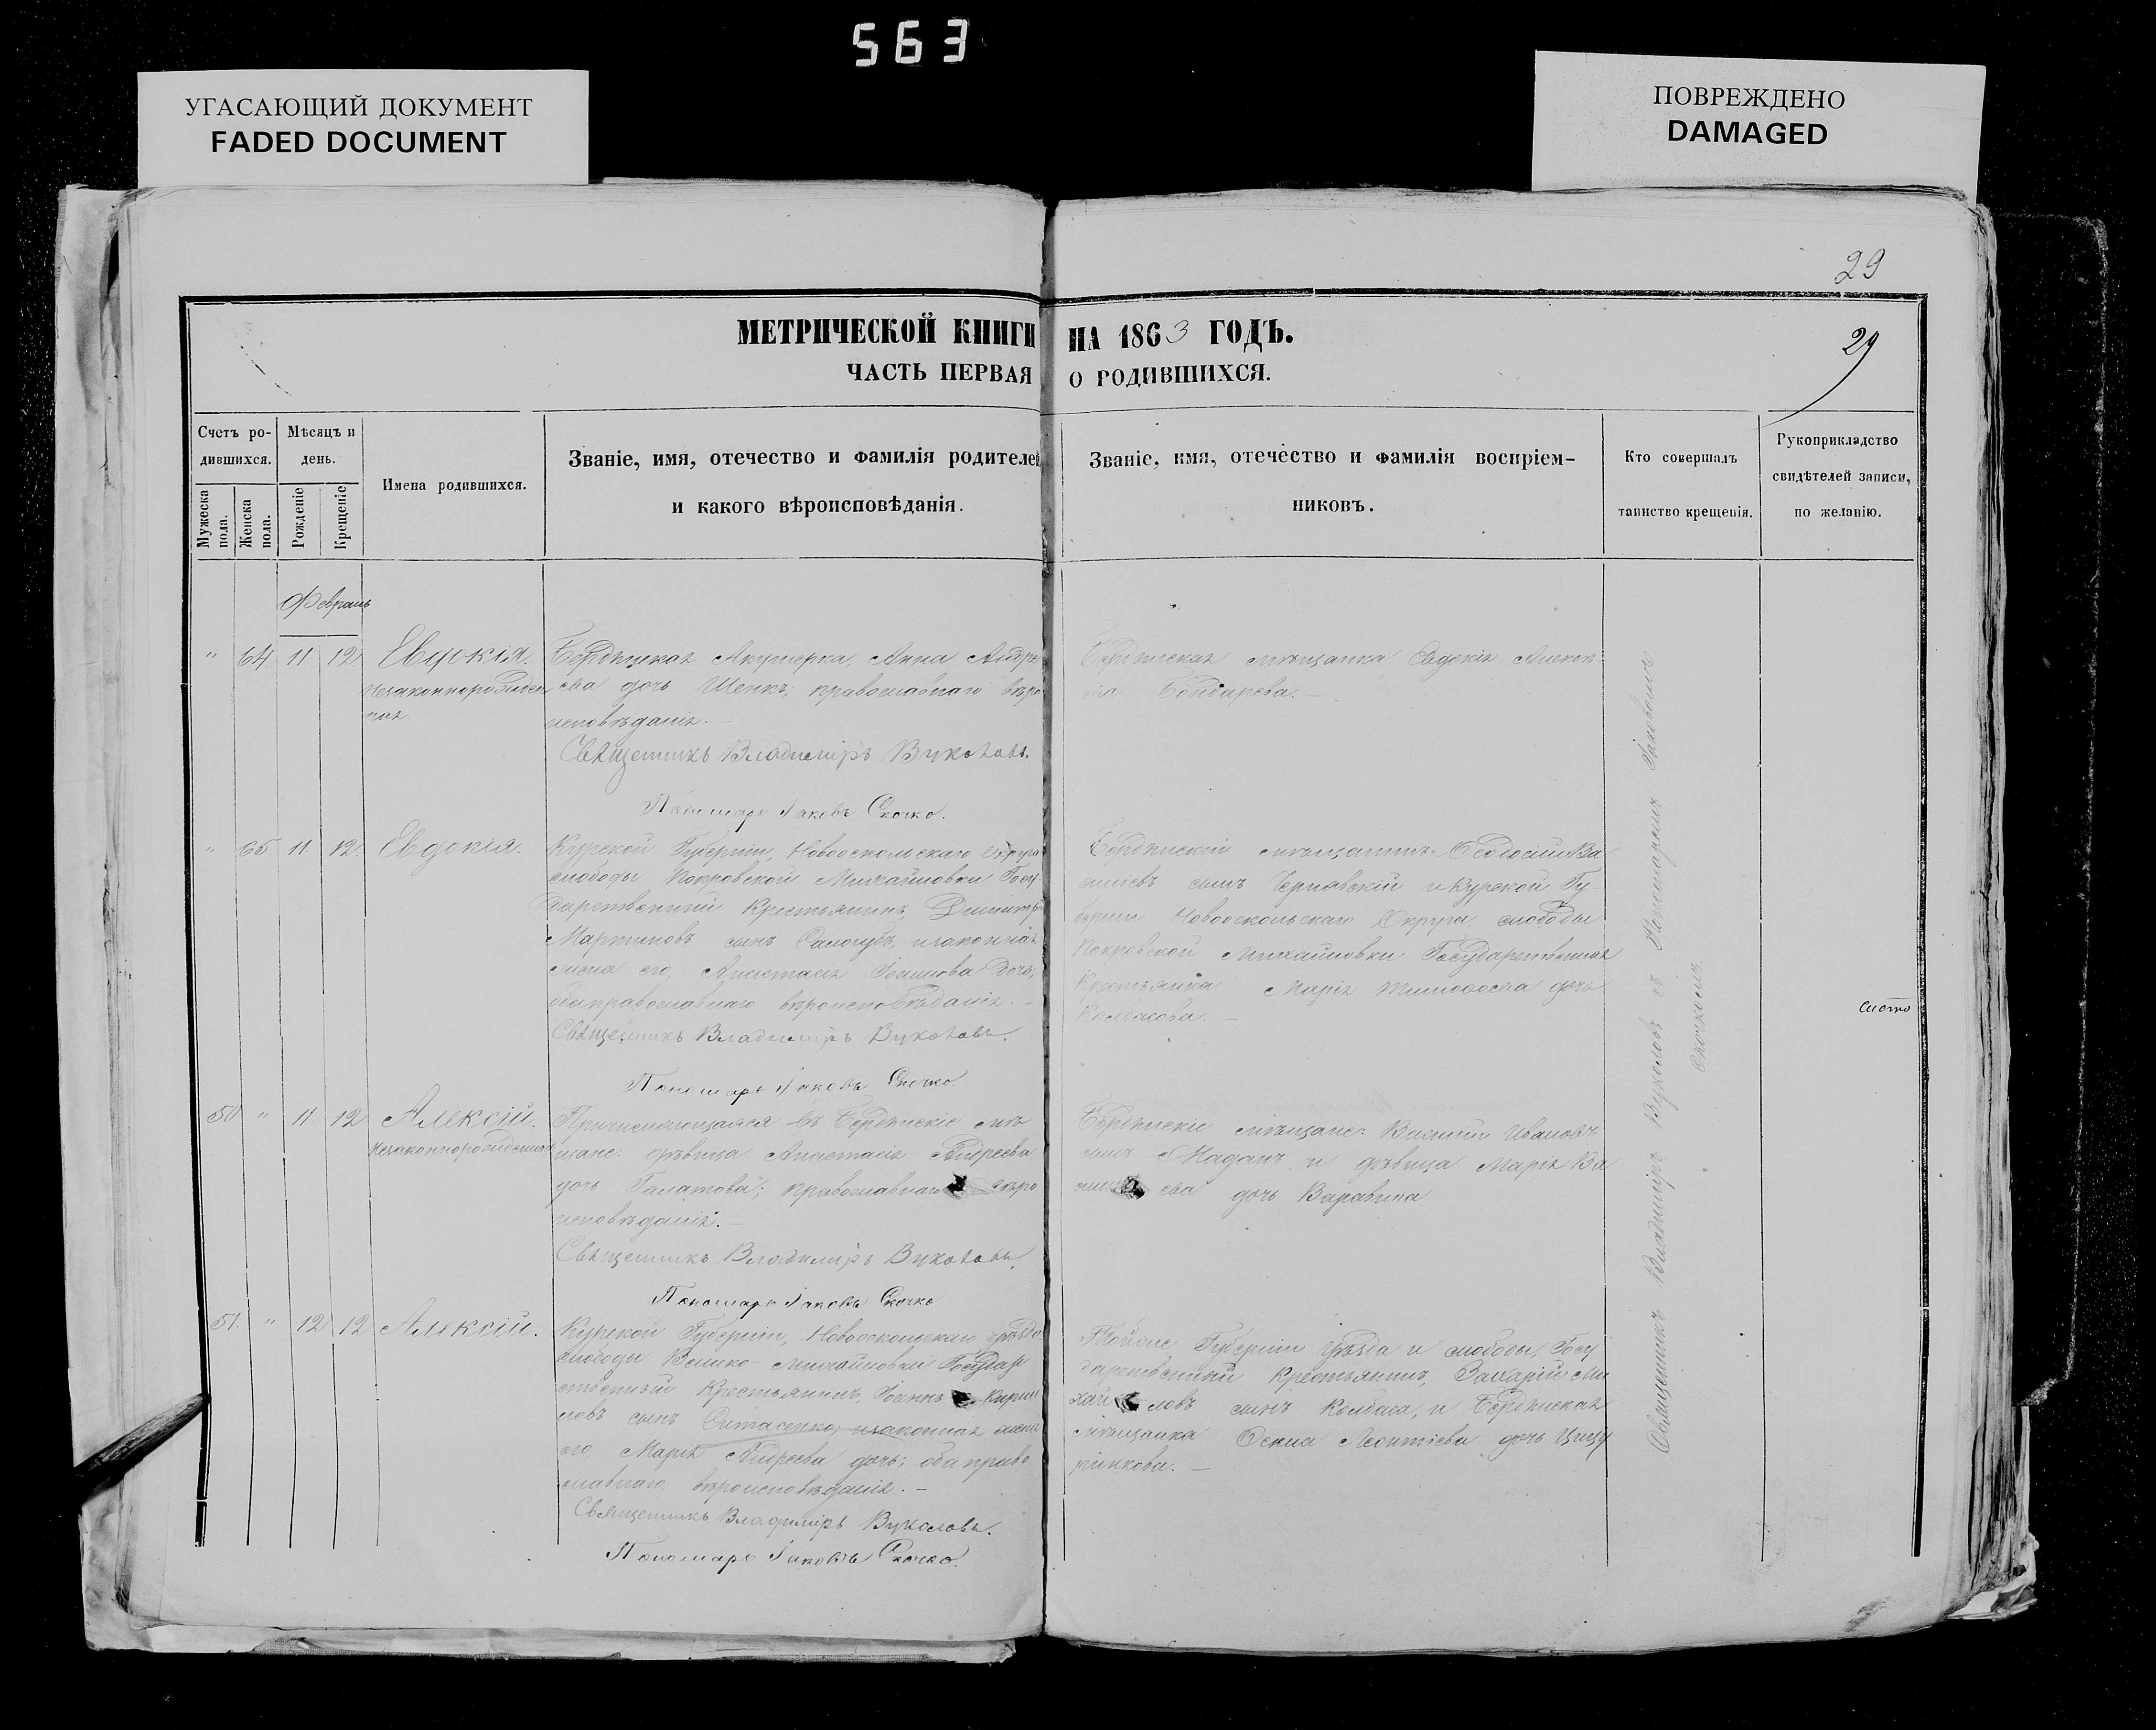 563
УГАСАЮЩИЙ ДОКУМЕНТ
FADED DOCUMENT
ПОВРЕЖДЕНО
DAMAGED
29
29
МЕТРИЧЕСКОЙ КНИГИ НА 1863 ГОДЪ.
ЧАСТЬ ПЕРВАЯ О РОДИВШИХСЯ.
Счетъ ро-
дившихся.
Мужеска пола.
Женска пола.
Мѣсяцъ и
день.
Рожденіе
Крещеніе
Имена родившихся.
Званіе, имя, отечество и фамилія родителей
и какого вѣроисповѣданія.
Званіе, имя, отечество и фамилія воспріем-
никовъ.
Кто совершалъ
таинство крещенія.
Рукоприкладство
свидѣтелей записи,
по желанію.
Февраль
" 64 11 12 Евдокія.
незаконнорожден
ная
Бердянская Акушерка, Анна Андре
ева дочь Шенкъ, православнаго вѣро
исповѣданія.–
Священникъ Владиміръ Вуколовъ.
Пономарь Іаковъ Скочко.
Бердянская мѣщанка Евдокія
Бондарева.–
" 65 11 12. Евдокія.
Курской Губерніи, Новооскольскаго Округа
слободы Покровской Михайловки Госу-
дарственный Крестьянинъ, Димитрій
Мартиновъ сынъ и законная
жена его Анастасія дочь;
оба православнаго вѣроисповѣданія.–
Священникъ Владиміръ Вуколовъ.
Пономарь Іаковъ Скочко.
Бердянскій мѣщанинъ Ва
сынъ Чернявскій и Курской Гу-
берніи Новооскольскаго Округа слободы
Покровской Михайловки Государственная
Крестьянка Марія Тимофеева дочь
Колбасова.–
50 " 11 12 Алексій.
Незаконнорожденный
Причисляющаяся въ Бердянскіе мѣ
щане: дѣвица Анастасія Андреева
дочь Галатова; православнаго вѣро
исповѣданія.–
Священникъ Владиміръ Вуколовъ.
Пономарь Іаковъ Скочко
Бердянскіе мѣщане: Василій Ивановъ
сынъ и дѣвица Марія Ва
ева дочь Варавина
51. " 12 12 Алексій.
Курской Губерніи, Новооскольскаго уѣзда
слободы Велико-Михайловки Государ
ственный Крестьянинъ, Іоаннъ Кирил
ловъ сынъ и законная жена
его, Марія Андреева дочь; оба право
славнаго вѣроисповѣданія.–
Священникъ Владиміръ Вуколовъ.
Пономарь Іаковъ Скочко.
Губерніи уѣзда и слободы, Госу
дарственный Крестьянинъ, Захарій Ми
хайловъ сынъ Колбаса, и Бердянская
мѣщанка Леонтіева дочь
Священникъ Владиміръ Вуколовъ съ Пономаремъ Іаковомъ
Скочкомъ.